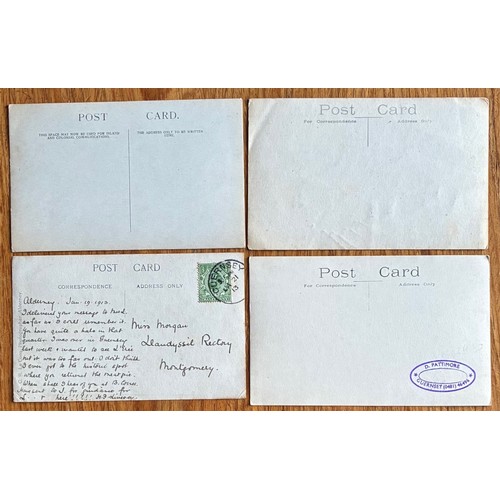 POST CARD.
THIS SPACE MAY NOW BE USED FOR INLAND
AND COLONIAL COMMUNICATIONS.
THE ADDRESS ONLY TO BE WRITTEN
HERE.
Post Card
For Correspondence
Address Only
POST CARD
CORRESPONDENCE
ADDRESS ONLY
GUERNSEY
Alderney. Jan. 19. 1912.
I delivered your message to
as far as I could remember it.
You have quite a halo in that
quarter. I was over in Guernsey
last week & wanted to see
but it was too far out. I don't think
I ever got to the historic spot
where you relieved the
When shall I hear of you at
for guidance for
here !!!!
Miss Morgan
Llandyssil Rectory
Montgomery.
Post Card
For Correspondence
Address Only
D. PATTIMORE
GUERNSEY (0481) 46496